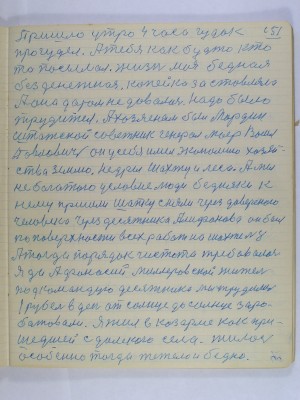 51
Пришло утро 4 часа гудок
прогудел. А тебя как будто кто
то посылал. жизн моя бедная
безденежная, копейка заставляла
А она даром не довалася. Надо было
трудится. А хозяеном был Мордвин
штатской советник генерал маер Васил
Павлович он у себя имел экономию хозяй-
ства землю. недрия Шахту и леса. А мы
не богатого условие люди бедняки к
нему пришли шахту сняли через доверенова
человека через десятника Алифанова он был
по поверхности всех работ на шахте му
А тогда порядок чистота требовалося
Я да Афонасий Миллеровской жител
под командую десятника мы трудилис
1 рубел в ден от солнце до солнце заро-
батовали. Я жил в казарме как при-
шедшей с далекого села. жилос
особенно тогда тежело и бедно.